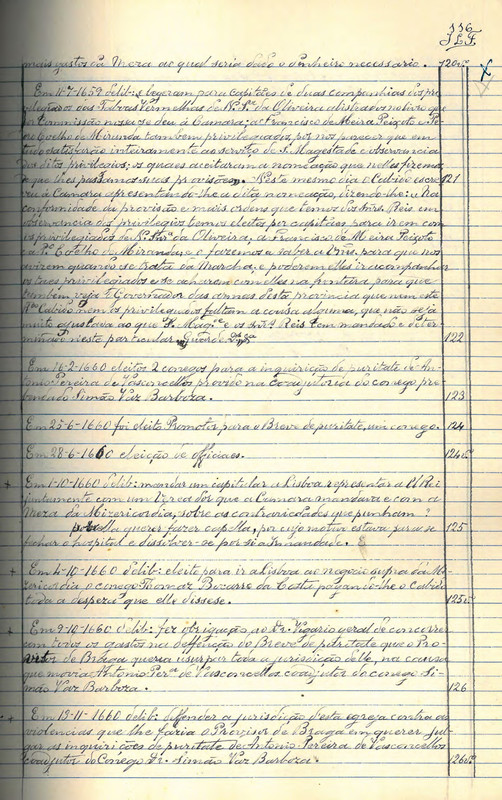 116
J.L.F.
mais gastos da Meza ao qual seria dado o dinheiro necessario. 120vº
Em 11-7-1659 delib: elegeram para capitães de duas companhias dos pri-
vilegiados das Taboas Vermelhas de Nª Srª da Oliveira alistrados no livro que
por commissão nossa se deu á Camara; a Francisco de Meira Peixoto e Pe-
ro Coelho de Miranda tambem privilegiados, por nos parecer que em
tudo satisfarão inteiramente ao serviço de S. Magestade e observancia
dos ditos privilegios; os quaes aceitaram a nomeação que nelles fizemos
de que lhes passamos suas provisões. Neste mesmo dia o Cabido escre- 121
veu á Camara apresentando-lhe a dita nomeação, dizendo-lhe: «Na
conformidade da provisão e mais ordens que temos dos Snrs. Reis em
observancia dos privilegios temos eleitos por capitães para irem com
os privilegiados de Nª Snrª da Oliveira, a Francisco de Meira Peixoto
e Pº Coelho de Miranda e o fazemos a saber a Vmcs. para que nos
avizem quando se trata da Marcha, e poderem elles ir acompanhar
os taes privilegiados e se acharem com elles na fronteira para que
tambem veja o Governador das armas desta provincia que nem este
Rdo Cabido nem os privilegiados faltam a cousa alguma, que não seja
muito ajustava ao que S. Magde e os snrs Reis tem mandado e deter-
minado neste particular. Guarde Ds etc. 122
Em 16-2-1660 eleitos 2 conegos para a inquirição de puritate de An-
tonio Pereira de Vasconcellos provido na coadjutoria do conego pre-
bendado Simão Vaz Barboza. 123
Em 25-6-1660 foi eleito Promotor para o Breve de puritate, um conego. 124
Em 28-6-1660 eleição de officiaes. 124vº
+ Em 1-10-1660 delib: mandar um capitular a Lisboa representar a El Rei
juntamente com um Vereador que a Camara mandava e com a
Meza da Misericordia, sobre as contrariedades que punham ?
querer fazer capella, por cujo motivo estava para se 125
fechar o hospital e dissolver-se por si a Irmandade.
+ Em 4-10-1660 delib: eleito para ir a Lisboa ao negocio supra da Mi-
zericordia o conego Thomaz Bocarro da Costa pagando-lhe o Cabido
toda a despeza que elle dissese. 125vº
+ Em 9-10-1660 delib: fez obrigação ao Dr. Vigario geral de concorrer
com todos os gastos na defensão do Breve de puritate que o Pro-
visor de Braga queria usurpar toda a jurisdição delle, na causa
que movia Antonio Perª de Vasconcellos coadjutor do conego Si-
mão Vaz Barboza. 126
+ Em 13-11-1660 delib: deffender a jurisdição desta igreja contra as
violencias que lhe fazia o Provisor de Braga em querer jul-
gar as inquirições de puritate de Antonio Pereira de Vasconcellos
coadjutor do Conego Dr. Simão Vaz Barboza. 126vº